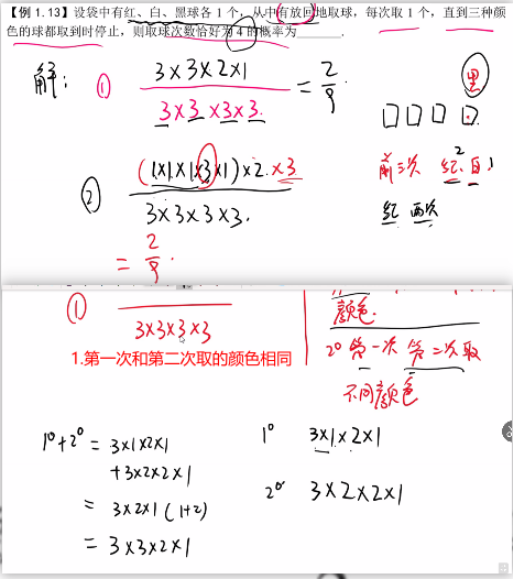 【例 1.13】设袋中有红、白、黑球各 1 个，从中有放回地取球，每次取 1 个，直到三种颜
色的球都取到时停止，则取球次数恰好为 4 的概率为______．
解：① 3×3×2×1 = 2/9．
3×3×3×3．
黑
前三次 红2、白1
红 两次
② (1×1×1×3×1)×2×3
3×3×3×3．
= 2/9．
①
3×3×3×3
颜色．
1.第一次和第二次取的颜色相同
2° 第一次 第二次取
不同颜色
1°+2° = 3×1×2×1
+3×2×2×1
= 3×2×1(1+2)
= 3×3×2×1
1° 3×1×2×1
2° 3×2×2×1